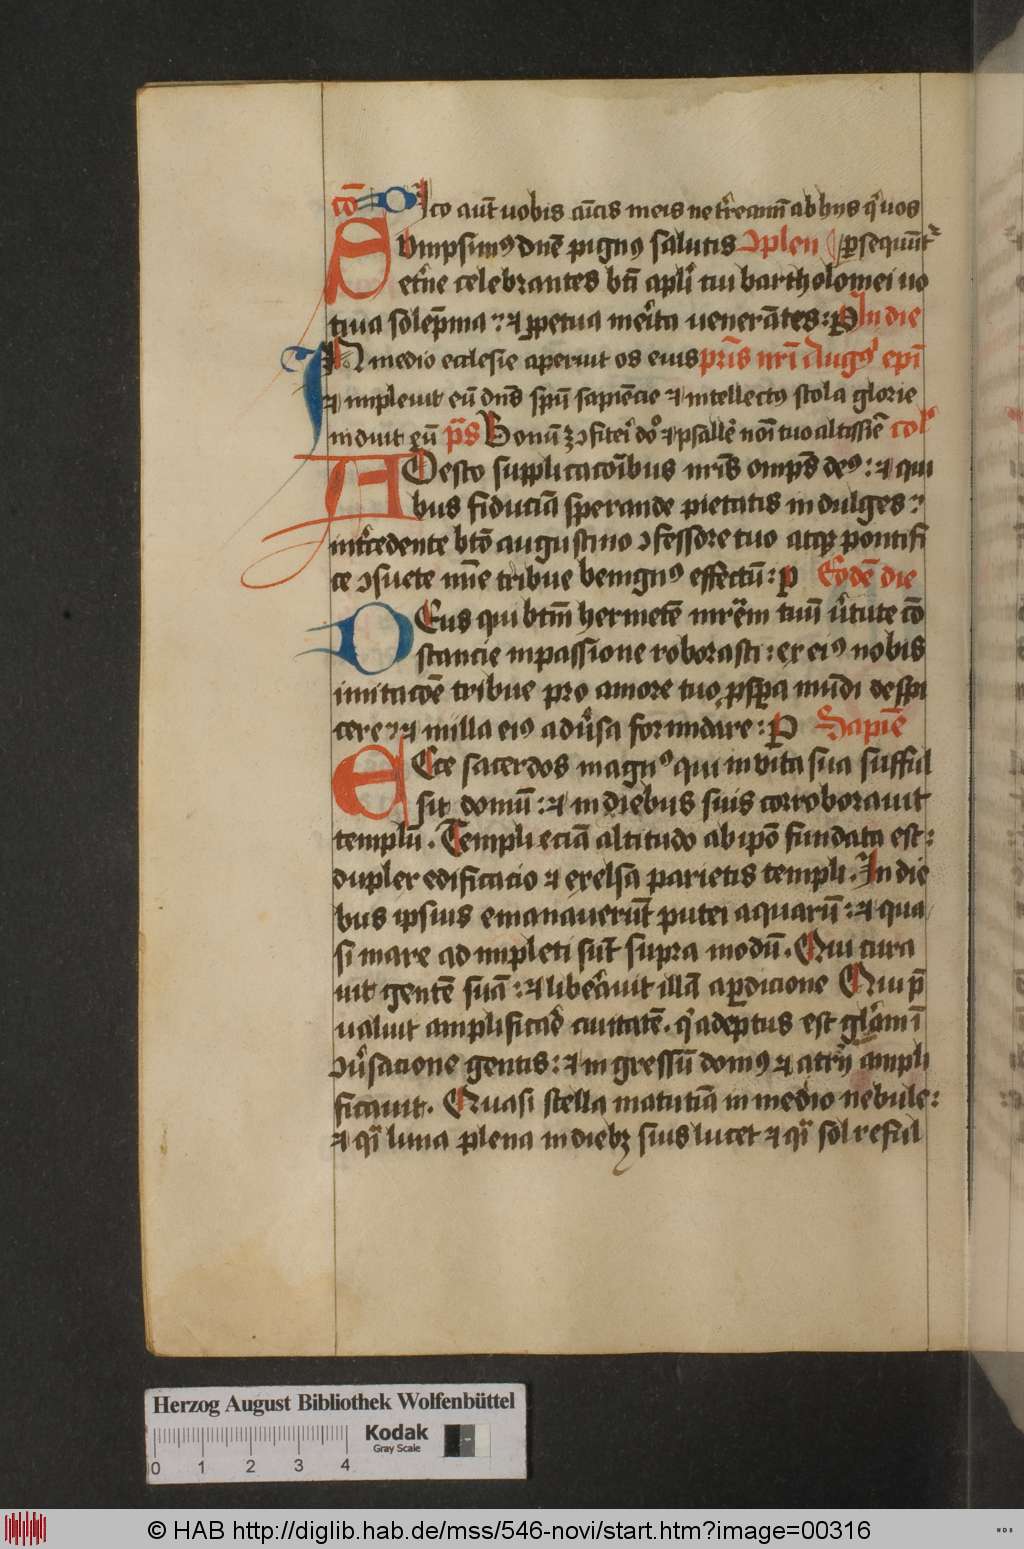 cō Dico aūt vobis am̄cis meis ne t'reamī ab hys q' vos
Sumpsimꝰ dn̄e pignꝰ salutis Ɔplen ꝑsequūt'
et'ne celebrantes bt̄i apl'i tui bartholomei uo
tiua solēp̄ma : ⁊ ꝑpetua mer'ita venerātes : P In die
In medio ecclesie aperuit os eius pr̄is nr̄i Augꝰ epī
⁊ impleuit eū dn̄s sp̄u sapiēcie ⁊ intellectꝰ stola glorie
induit eū p̄s Bonū ē Ɔfiteri do° ⁊ psallē noī tuo altissīe col'
Adesto supplicacoībus nr̄is omp̄s deꝰ : ⁊ qui
bus fiduciā sperande pietatis indulges :
int'cedente bt̄o augustino ɔfessore tuo atqꝫ pontifi
ce ɔsuete mīe tribue benignꝰ effectū : p Eodē die
Deus qui bt̄m hermetē mr̄em tuū v'tute cō
stancie in passione roborasti : ex eiꝰ nobis
imitacōe tribue pro amore tuo ꝓsꝑa mūdi despi
cere : ⁊ nulla eiꝰ adu'sa formidare : P Sapiē
Ecce sacerdos magnꝰ qui in vita sua sufful
sit domū : ⁊ in diebus suis corroborauit
templū . Templi eciā altitudo ab ip̄o fundata est :
duplex edificacio ⁊ exelsa parietis templi . In die
bus ipsius emanauerūt putei aquarū : ⁊ qua
si mare adimpleti sūt supra modū . Qui cura
uit gentē suā : ⁊ liberauit illā a ꝑdicione Qui p̄
ualuit amplificad' ciuitatē . q' adeptus est gl'am ī
ɔu'sacione gentis : ⁊ ingressū domꝰ ⁊ atrij ampli
ficauit . Quasi stella matutīa in medio nebule :
⁊ q̄i luna plena in diebꝫ suis lucet ⁊ q̄i sol reful
Herzog August Bibliothek Wolfenbüttel
Kodak
Gray Scale
0 1 2 3 4
© HAB http://diglib.hab.de/mss/546-novi/start.htm?image=00316